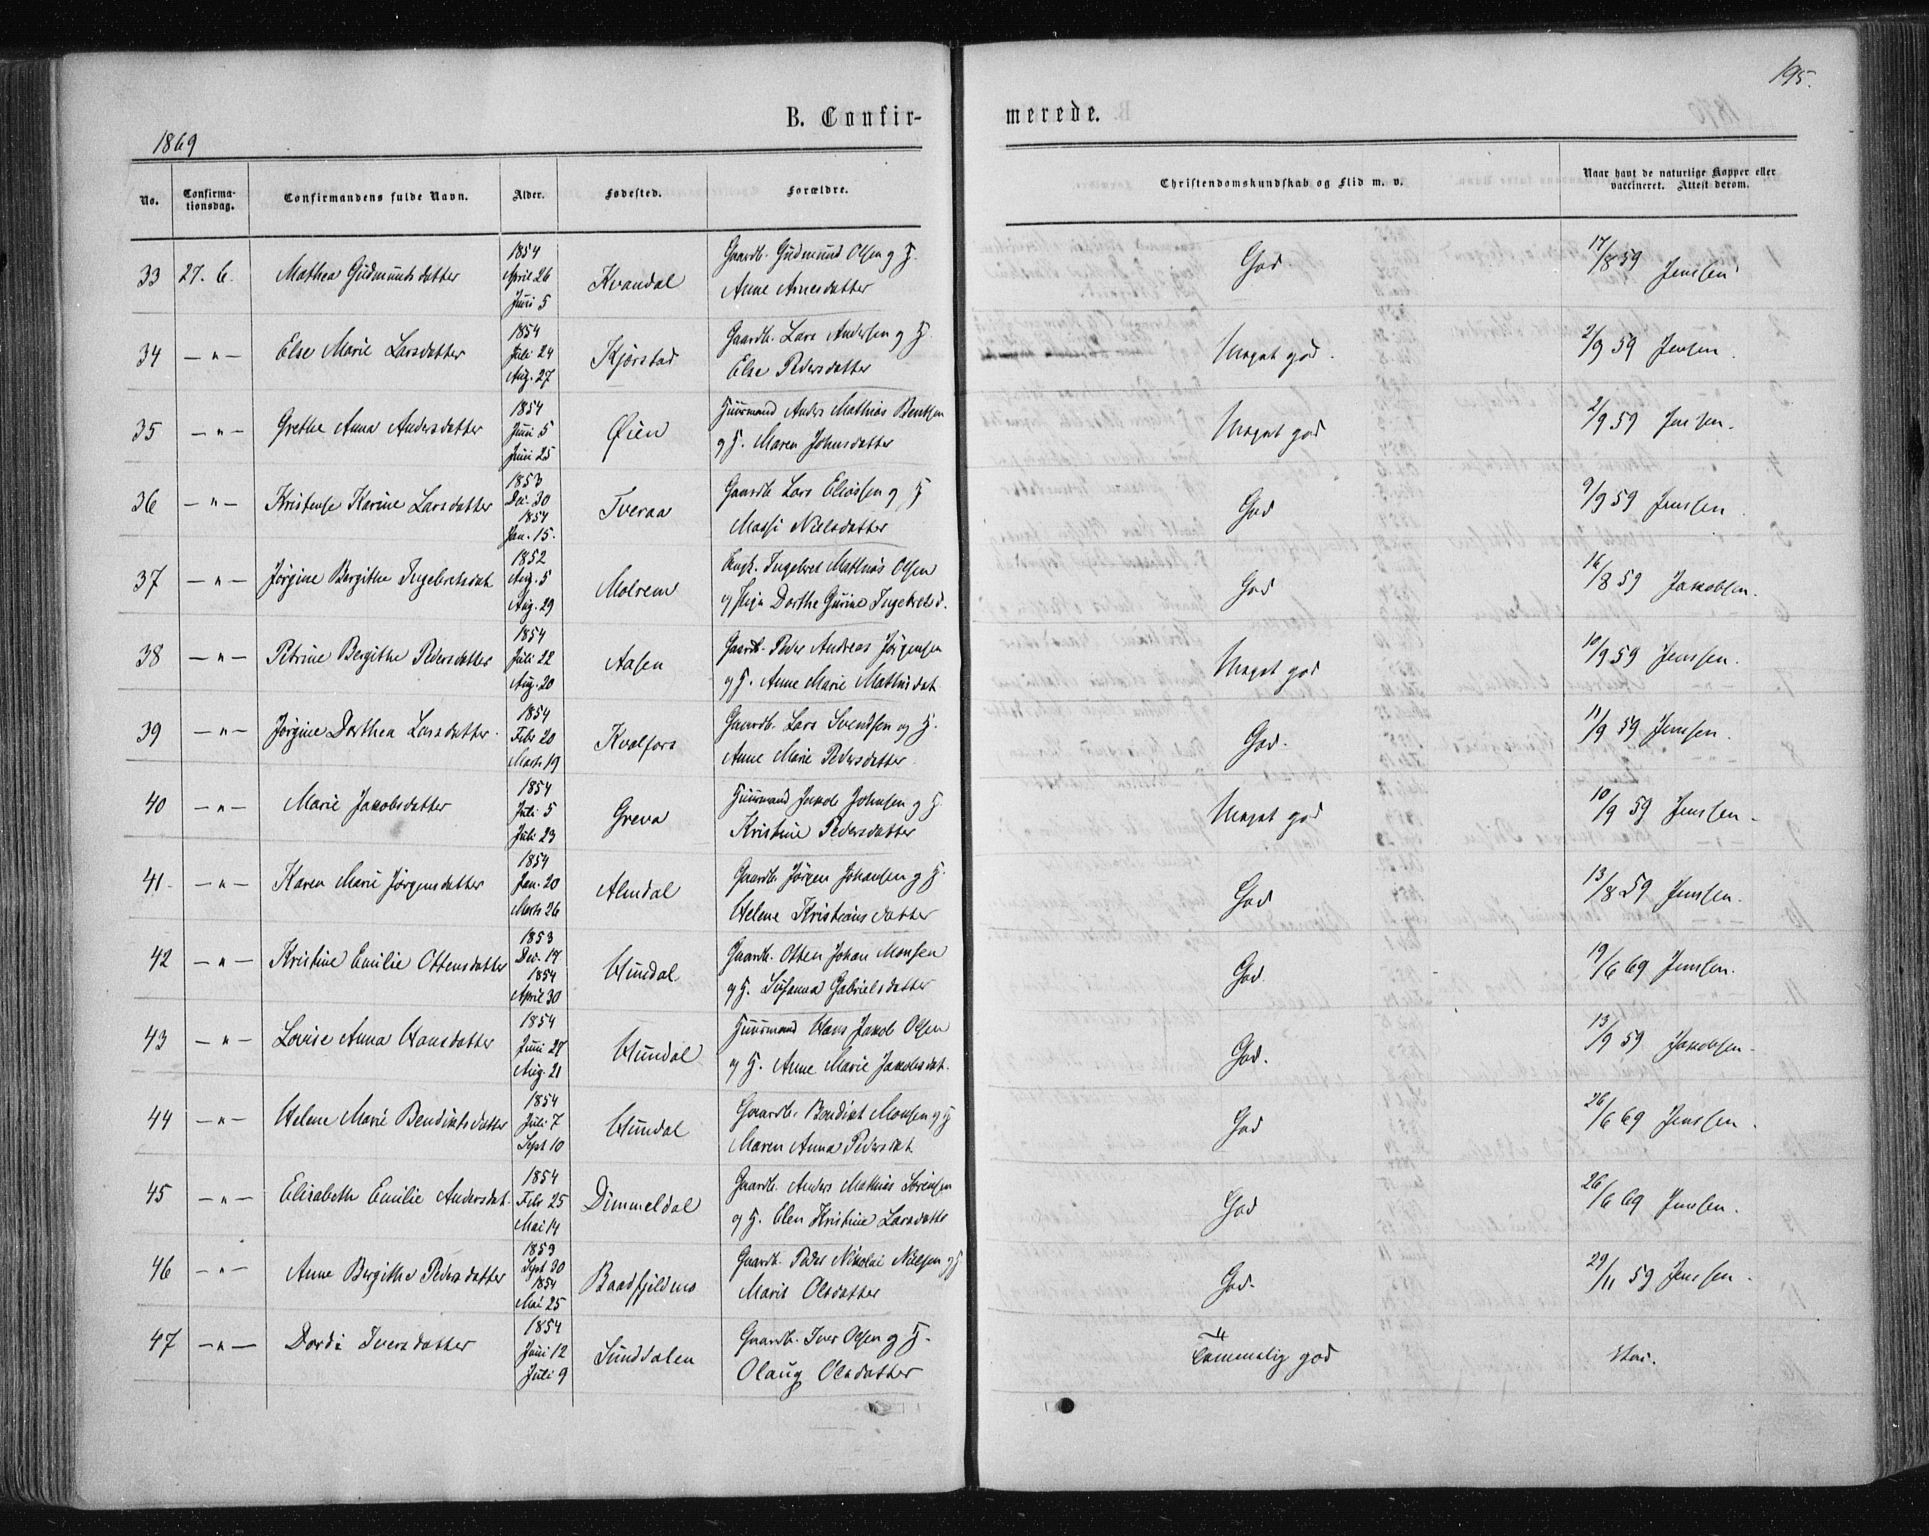 195.
1869
B. Confir-
merede.
No.
Confirma-
tionsdag.
Confirmandens fulde Navn.
Alder.
Fødested.
Forældre.
Christendomskundskab og Flid m. v.
Naar havt de naturlige Kopper eller
vaccineret. Attest derom.
33 27. 6. Mathea Gudmundsdatter 1854 April 26 Juni 5 Kvandal Gaardb. Gudmund Olsen og H. Anne Arnesdatter God. 17/8 59 Jenssen
34 — " — Else Marie Larsdatter 1854 Juli 24 Aug. 27 Kjørstad Gaardb. Lars Andersen og H Else Pedersdatter Meget god. 2/9 59 Jenssen.
35 — " — Grethe Anna Andersdatter 1854 Juni 5 Juni 25 Øien Huusmand Anders Mathias Bentsen og H. Maren Johnsdatter Meget god 2/9 59 Jenssen.
36 — " — Kristense Karine Larsdatter 1853 Dec. 30 1854 Jan. 15. Tveraa Gaardb. Lars Eliassen og H Massi Nielsdatter God 9/9 59 Jenssen.
37 — " — Jørgine Bergithe Ingebretsdat 1852 Aug. 5 Aug. 29 Molrem Ungk. Ingebret Mathias Olsen og Pige Dorthe Gurine Ingebretsd. God 16/8 59 Jakobsen.
38 — " — Petrine Bergithe Pedersdatter 1854 Juli 22 Aug. 20 Aasen Gaardb. Peder Andreas Jørgensen og H. Anne Marie Mathisdat Meget god 10/9 59 Jenssen.
39 — " — Jørgine Dorthea Larsdatter. 1854 Febr 20 Marts 19 Kvalfors Gaardb. Lars Svendsen og H. Anne Marie Pedersdatter God. 11/9 59 Jenssen.
40 — " — Marie Jakobsdatter 1854 Juli 5 Juli 23 Greva Huusmand Jakob Johnsen og H. Kristine Pedersdatter Meget god 10/9 59 Jenssen.
41. — " — Karen Marie Jørgensdatter 1854 Jan. 20 Marts 26 Almdal Gaardb. Jørgen Johansen og H. Helene Kristiansdatter God 13/8 59 Jenssen.
42 — " — Kristine Emilie Ottensdatter 1853 Dec. 14 1854 April 30 Hundal Gaardb. Otten Johan Monsen og H. Susanna Gabrielsdatter God. 19/6 69 Jenssen.
43 — " — Lovise Anna Hansdatter 1854 Juni 27 Aug. 21 Hundal Huusmand Hans Jakob Olsen og H. Anne Marie Jakobsdat. God. 13/9 59 Jakobsen.
44 — " — Helene Marie Bendiktsdatter 1854 Juli 7 Sept 10 Hundal Gaardb. Bendikt Monsen og H Maren Anna Pedersdat God 26/6 69 Jenssen.
45 — " — Elisabeth Emilie Andersdat. 1854 Febr 25 Mai 14 Dimmeldal Gaardb. Anders Mathias Sørensen og H. Elen Kristine Larsdatte God 26/6 69 Jenssen.
46 — " — Anne Bergithe Pedersdatter 1853 Sept 30 1854 Mai 25 Baadfjeldnes Gaardb. Peder Nikolai Nielsen og H Marit Olsdatter God. 29/11 59 Jenssen.
47 — " — Dordi Iversdatter 1854 Juni 12 Juli 9 Sunddalen Gaardb. Iver Olsen og H. Olaug Olsdatter Temmelig god